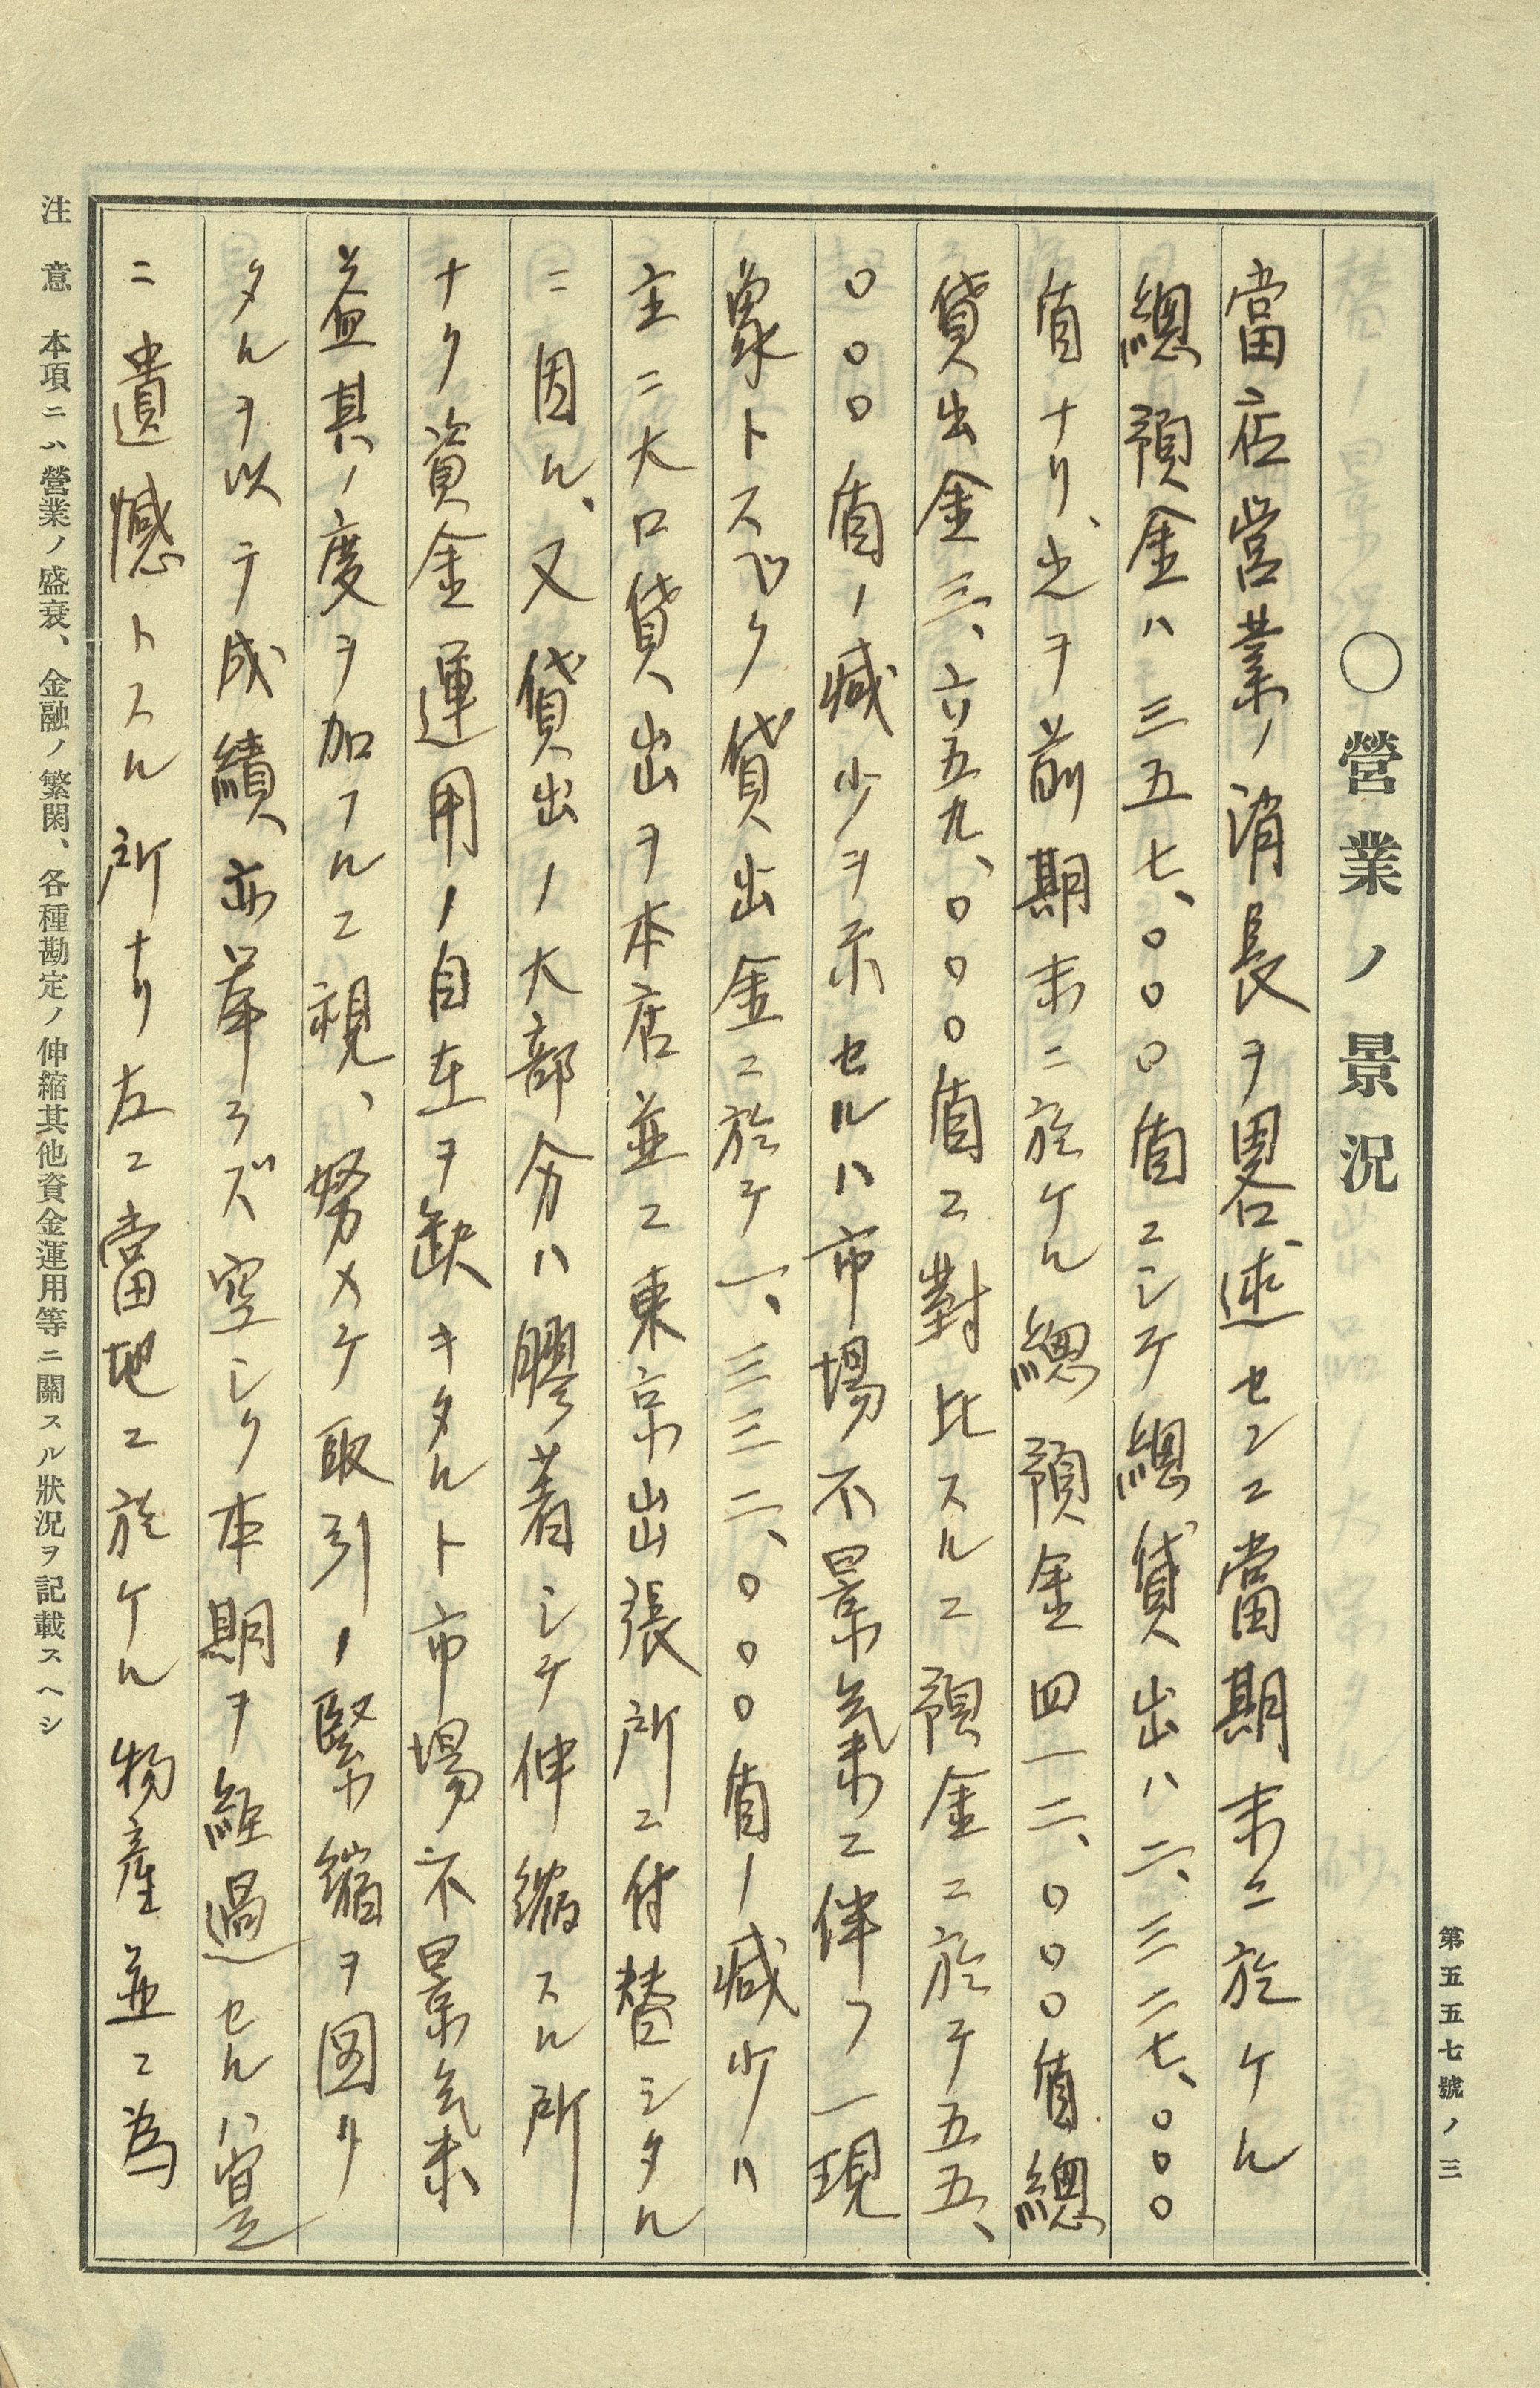 第五五七號ノ三
〇營業ノ景況
當店營業ノ消長ヲ畧述センニ當期末ニ於ケル
總預金ハ三五七、〇〇〇円ニシテ總貸出ハ二、三二七、〇〇〇
円ナリ、之ヲ前期末ニ於ケル總預金四一二、〇〇〇円總
貸出金三、六五九、〇〇〇円ニ對比スルニ預金ニ於テ五五、
〇〇〇円ノ減少ヲ示セルハ市場不景氣ニ伴フ一現
象トスベク貸出金ニ於テ一、三三二、〇〇〇円ノ減少ハ
主ニ大口貸出ヲ本店並ニ東京出張所ニ付替シタル
ニ因ル、又貸出ノ大部分ハ膠着シテ伸縮スル所
ナク資金運用ノ自在ヲ缺キタルト市場不景氣
益其ノ度ヲ加フルニ視、努メテ取引ノ緊縮ヲ図リ
タルヲ以テ成績亦挙ラズ空シク本期ヲ経過セルハ寔
ニ遺憾トスル所ナリ左ニ當地ニ於ケル物産並ニ為
注意 本項ニハ營業ノ盛衰、金融ノ繁閑、各種勘定ノ伸縮其他資金運用等ニ關スル狀況ヲ記載スヘシ